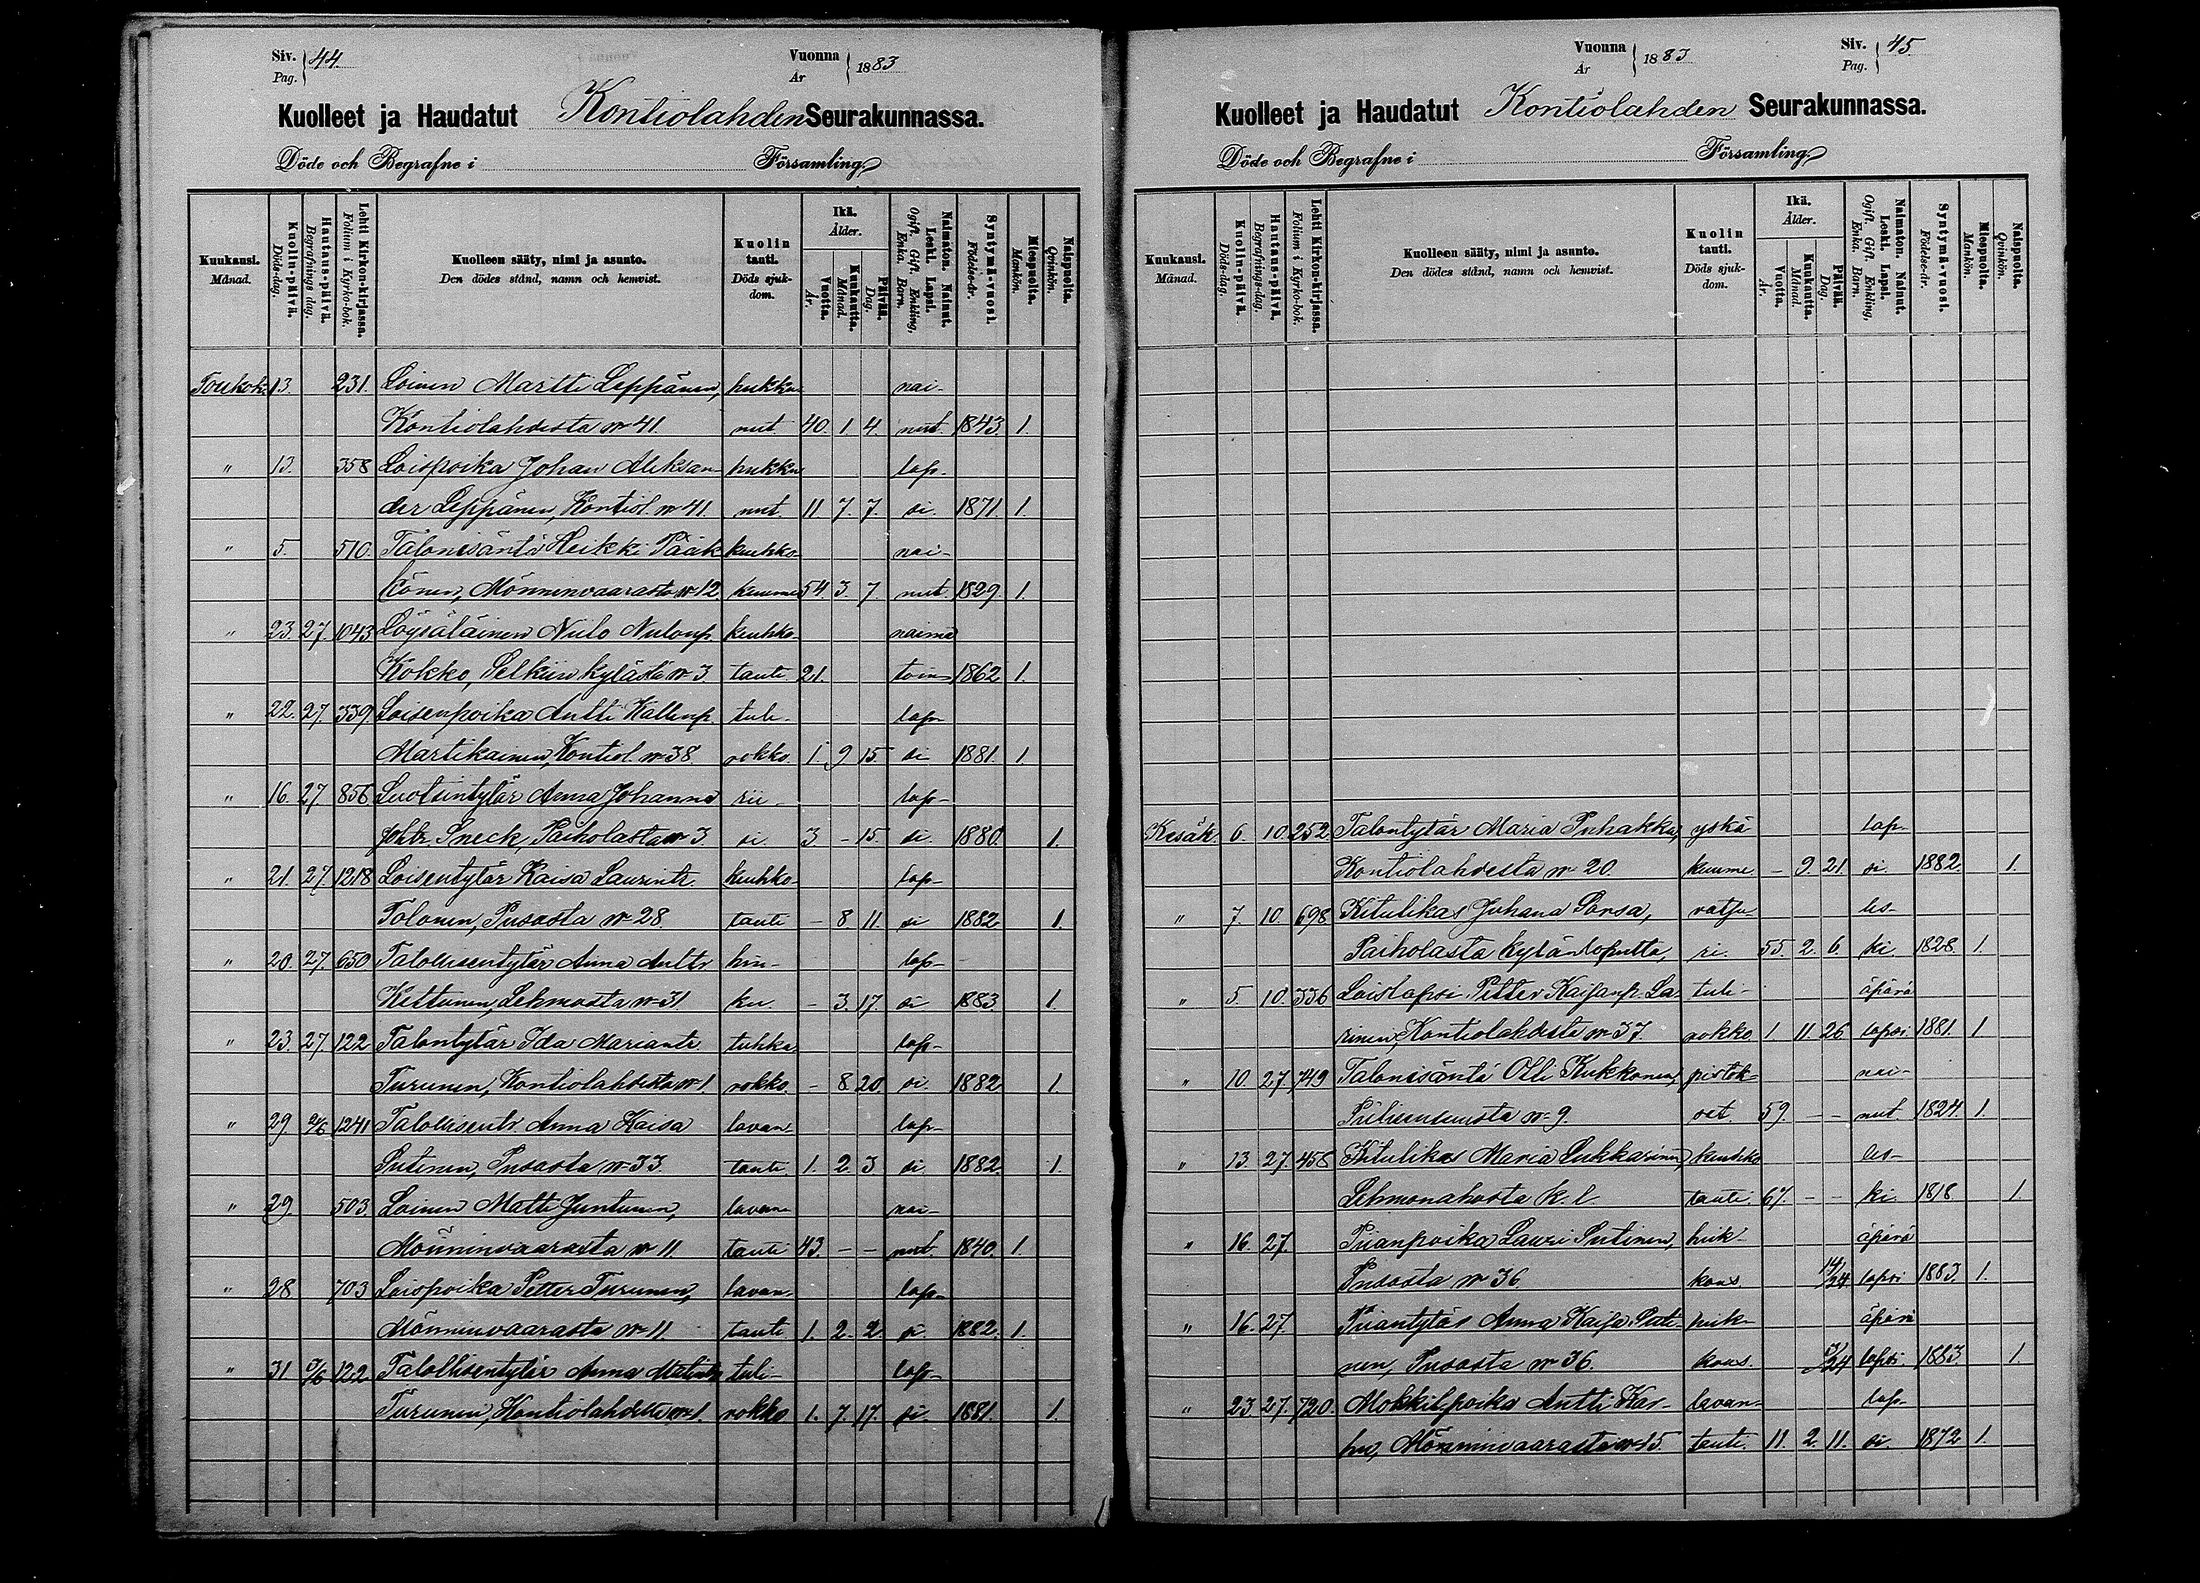 Siv. Pag. 44. Vuonna År 1883
Kuolleet ja Haudatut Kontiolahden Seurakunnassa.
Döde och Begrafne i Församling
Kuukausi. Månad. Kuolin-päivä. Döds-dag. Hautaus-päivä. Begrafnings dag. Lehti Kirkon-kirjassa. Folium i Kyrko-bok. Kuolleen sääty, nimi ja asunto. Den dödes stånd, namn och hemvist. Kuolin tauti. Döds sjuk-dom. Ikä. Ålder. Vuotta. År. Kuukautta. Månad. Päivää. Dag. Naimaton. Nainut. Leski. Lapsi. Ogift. Gift. Enkling, Enka. Barn. Syntymä-vuosi. Födelse-år. Miespuolta. Mankön. Naispuolta. Qvinkön.
Toukok. 13. 231. Loinen Martti Leppänen, hukku- nai-
Kontiolahdesta № 41. nut. 40. 1. 4. nut. 1843. 1.
" 13. 358 Loispoika Johan Aleksan- hukku lap-
der Leppänen, Kontiol. № 41. nut. 11 7. 7. si. 1871. 1.
" 5. 510. Talonisäntä Heikki Pääk keuhko- nai-
könen, Mönninvaarasta № 12. kuume 54. 3. 7. nut. 1829. 1.
" 23. 27. 1043 Löysäläinen Niilo Niilonp. keuhko- naima
Kokko, Selkien kylästä № 3. tauti 21. toin 1862 1.
" 22. 27. 339. Loisenpoika Antti Kallenp. tuli- lap-
Martikainen, Kontiol. № 38. rokko. 1. 9 15. si 1881. 1
" 16. 27. 856 Luotsintytär Anna Johanna rii- lap-
Johtr. Sneck, Paiholasta № 3 si. 3 - 15. si. 1880. 1.
" 21. 27. 1218 Loisentytär Kaisa Laurintr. keuhko- lap-
Tolonen, Pusosta № 28. tauti - 8 11. si 1882 1.
" 20. 27. 650 Talollisentytär Anna Anttr hin- lap-
Kettunen, Lehmosta № 31. ku. - 3. 17. si 1883. 1.
" 23. 27. 122 Talontytär Ida Mariantr. tuhka lap-
Turunen, Kontiolahdesta № 1. rokko. - 8 20. si. 1882 1.
" 29. 2/6 1241 Talollisentr Anna Kaisa lavan- lap-
Sutinen, Pusosta № 33. tauti. 1. 2 3 si 1882. 1.
" 29. 503. Loinen Matti Juntunen, lavan nai-
Mönninvaarasta № 11. tauti 43. - - nut. 1840. 1.
" 28 703 Loispoika Petter Turunen, lavan- lap-
Mönninvaarasta № 11. tauti 1. 2. 2. si. 1882. 1.
" 31 122 Talollisentytär Anna tuli- lap-
Turunen, Kontiolahdesta № 1. rokko 1. 7. 17. si. 1881. 1.
Vuonna År 1883 Siv. Pag. 45
Kuolleet ja Haudatut Kontiolahden Seurakunnassa.
Döde och Begrafne i Församling
Kuukausi. Månad. Kuolin-päivä. Döds-dag. Hautaus-päivä. Begrafnings-dag. Lehti Kirkon-kirjassa. Folium i Kyrko-bok. Kuolleen sääty, nimi ja asunto. Den dödes stånd, namn och hemvist. Kuolin tauti. Döds sjuk-dom. Ikä. Ålder. Vuotta. År. Kuukautta. Månad. Päivää. Dag. Naimaton. Nainut. Leski. Lapsi. Ogift. Gift. Enkling, Enka. Barn. Syntymä-vuosi. Födelse-år. Miespuolta. Mankön. Naispuolta. Qvinkön.
Kesäk. 6. 10. 252. Talontytär Maria Puhakka, yskä lap-
Kontiolahdesta № 20. kuume - 9. 21. si. 1882. 1.
" 7. 10. 698 Kitulikas Juhana Sorsa, les-
Paiholasta kylänloputta, ri. 55. 2. 6. ki. 1828. 1.
" 5. 10. 336 Loislapsi Petter Kaisanp. La- tuli- äpärä
rinen, Kontiolahdesta № 37. rokko 1 11. 26. lapsi. 1881. 1
" 10. 27. 749 Talonisäntä Olli Kukkonen, pistok- nai-
№ 9. set. 59. - - nut. 1824. 1.
" 13. 27. 458 Kitulikas Maria Lukkarinen, keuhko les-
Lehmonahosta k. l. tauti. 67. - - ki. 1818 1.
" 16. 27. Piianpoika Lauri Sutinen, heik- äpärä
Pusosta № 36. kous. 14/24 lapsi 1883. 1.
" 16. 27. Piiantytär Anna Kaisa Suti- heik- äpärä
nen, Pusosta № 36. kous. lapsi 1883. 1.
" 23. 27. 720. Mökkiläpoika Antti Kar- lavan- lap-
hu, Mönninvaarasta № 15. tauti. 11. 2. 11. si. 1872 1.